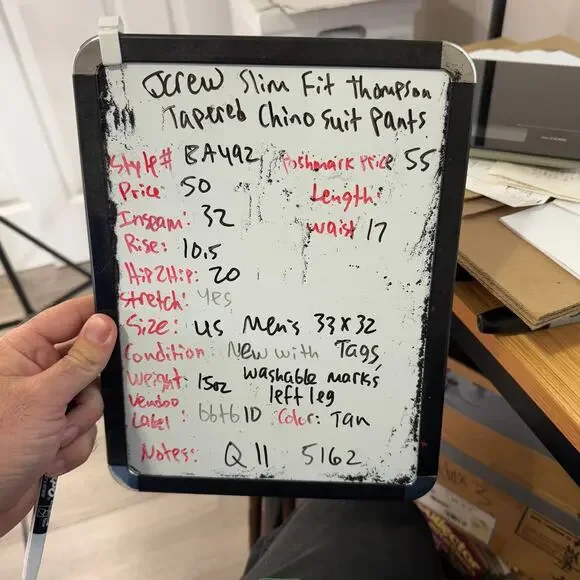 Jcrew Slim Fit Thompson
Tapered Chino Suit Pants
Style# BA492 Poshmark Price 55
Price 50 Length:
Inseam: 32 waist 17
Rise: 10.5
Hip2Hip: 20
Stretch: yes
Size: US Men's 33x32
Condition: New with Tags,
Weight: 15oz washable marks
left leg
Vendoo
Label: Color: Tan
Notes: Q 11 5162